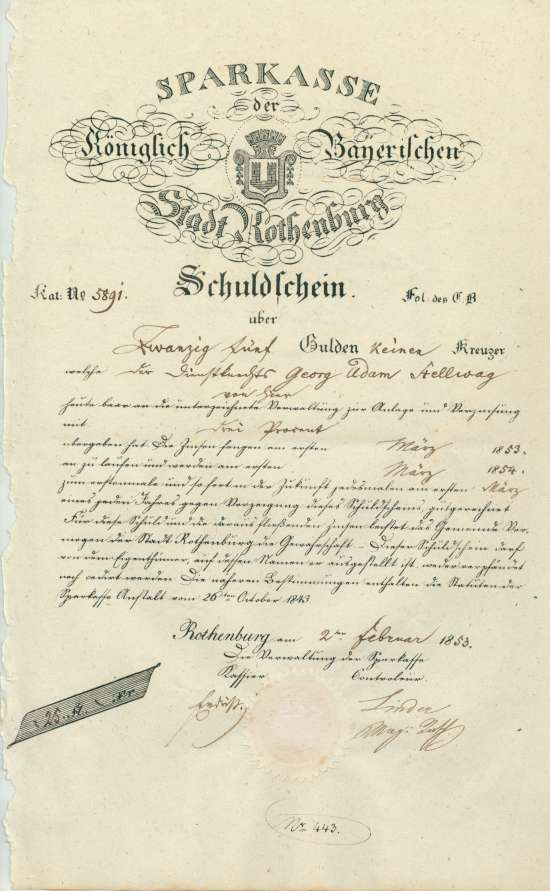 SPARKASSE
der
Königlich Bayerischen
Stadt Rothenburg
Schuldschein.
Kat: No 5891. Fol. des C B
uber
Zwanzig fünf Gulden keinen Kreuzer
welche der Dienstknecht Georg Adam Hellwag
von hier
heute baar an die unterzeichnete Verwaltung zur Anlage und Verzinsung
mit drei Procent
übergeben hat. Die Zinsen fangen am ersten März 1853.
an zu laufen und werden am ersten März 1854.
zum erstenmale und sofort in der Zukunft jedesmalen am ersten März
eines jeden Jahres gegen Vorzeigung dieses Schuldscheins, gutgerechnet
Für diese Schuld und die daraus fließenden Zinsen leistet das Gemeinde Ver-
mögen der Stadt Rothenburg die Gewährschaft. Dieser Schuldschein darf
von dem Eigenthümer, auf dessen Namen er ausgestellt ist, weder verpfändet
noch cedirt werden. Die näheren Bestimmungen enthalten die Statuten der
Sparkasse Anstalt vom 26ten October 1843
Rothenburg am 2ten Februar 1853.
Die Verwaltung der Sparkasse
Kassier Controleur.
Linder
25 fl. kr
No 443.